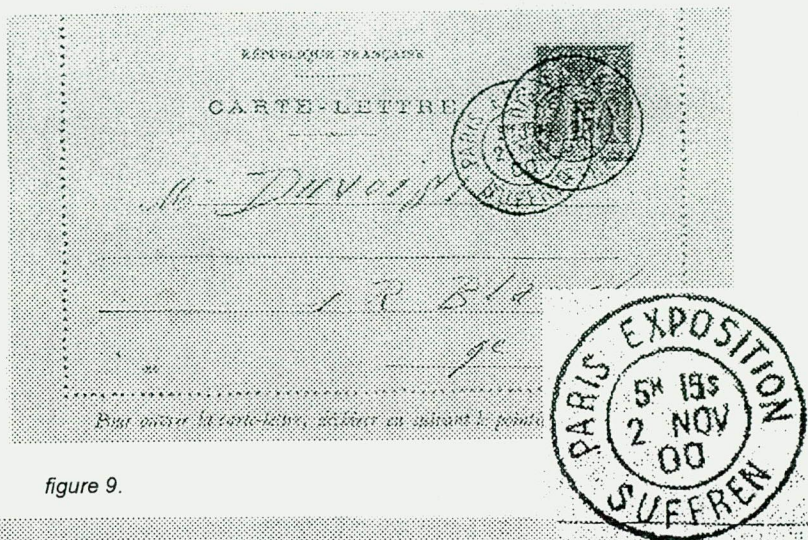 RÉPUBLIQUE FRANÇAISE
CARTE-LETTRE
PARIS
M Duvoisi
1 R Bl
9e
Pour ouvrir la carte-lettre, déchirer en suivant le pointi
PARIS EXPOSITION
5H 15S
2 NOV
00
SUFFREN
figure 9.